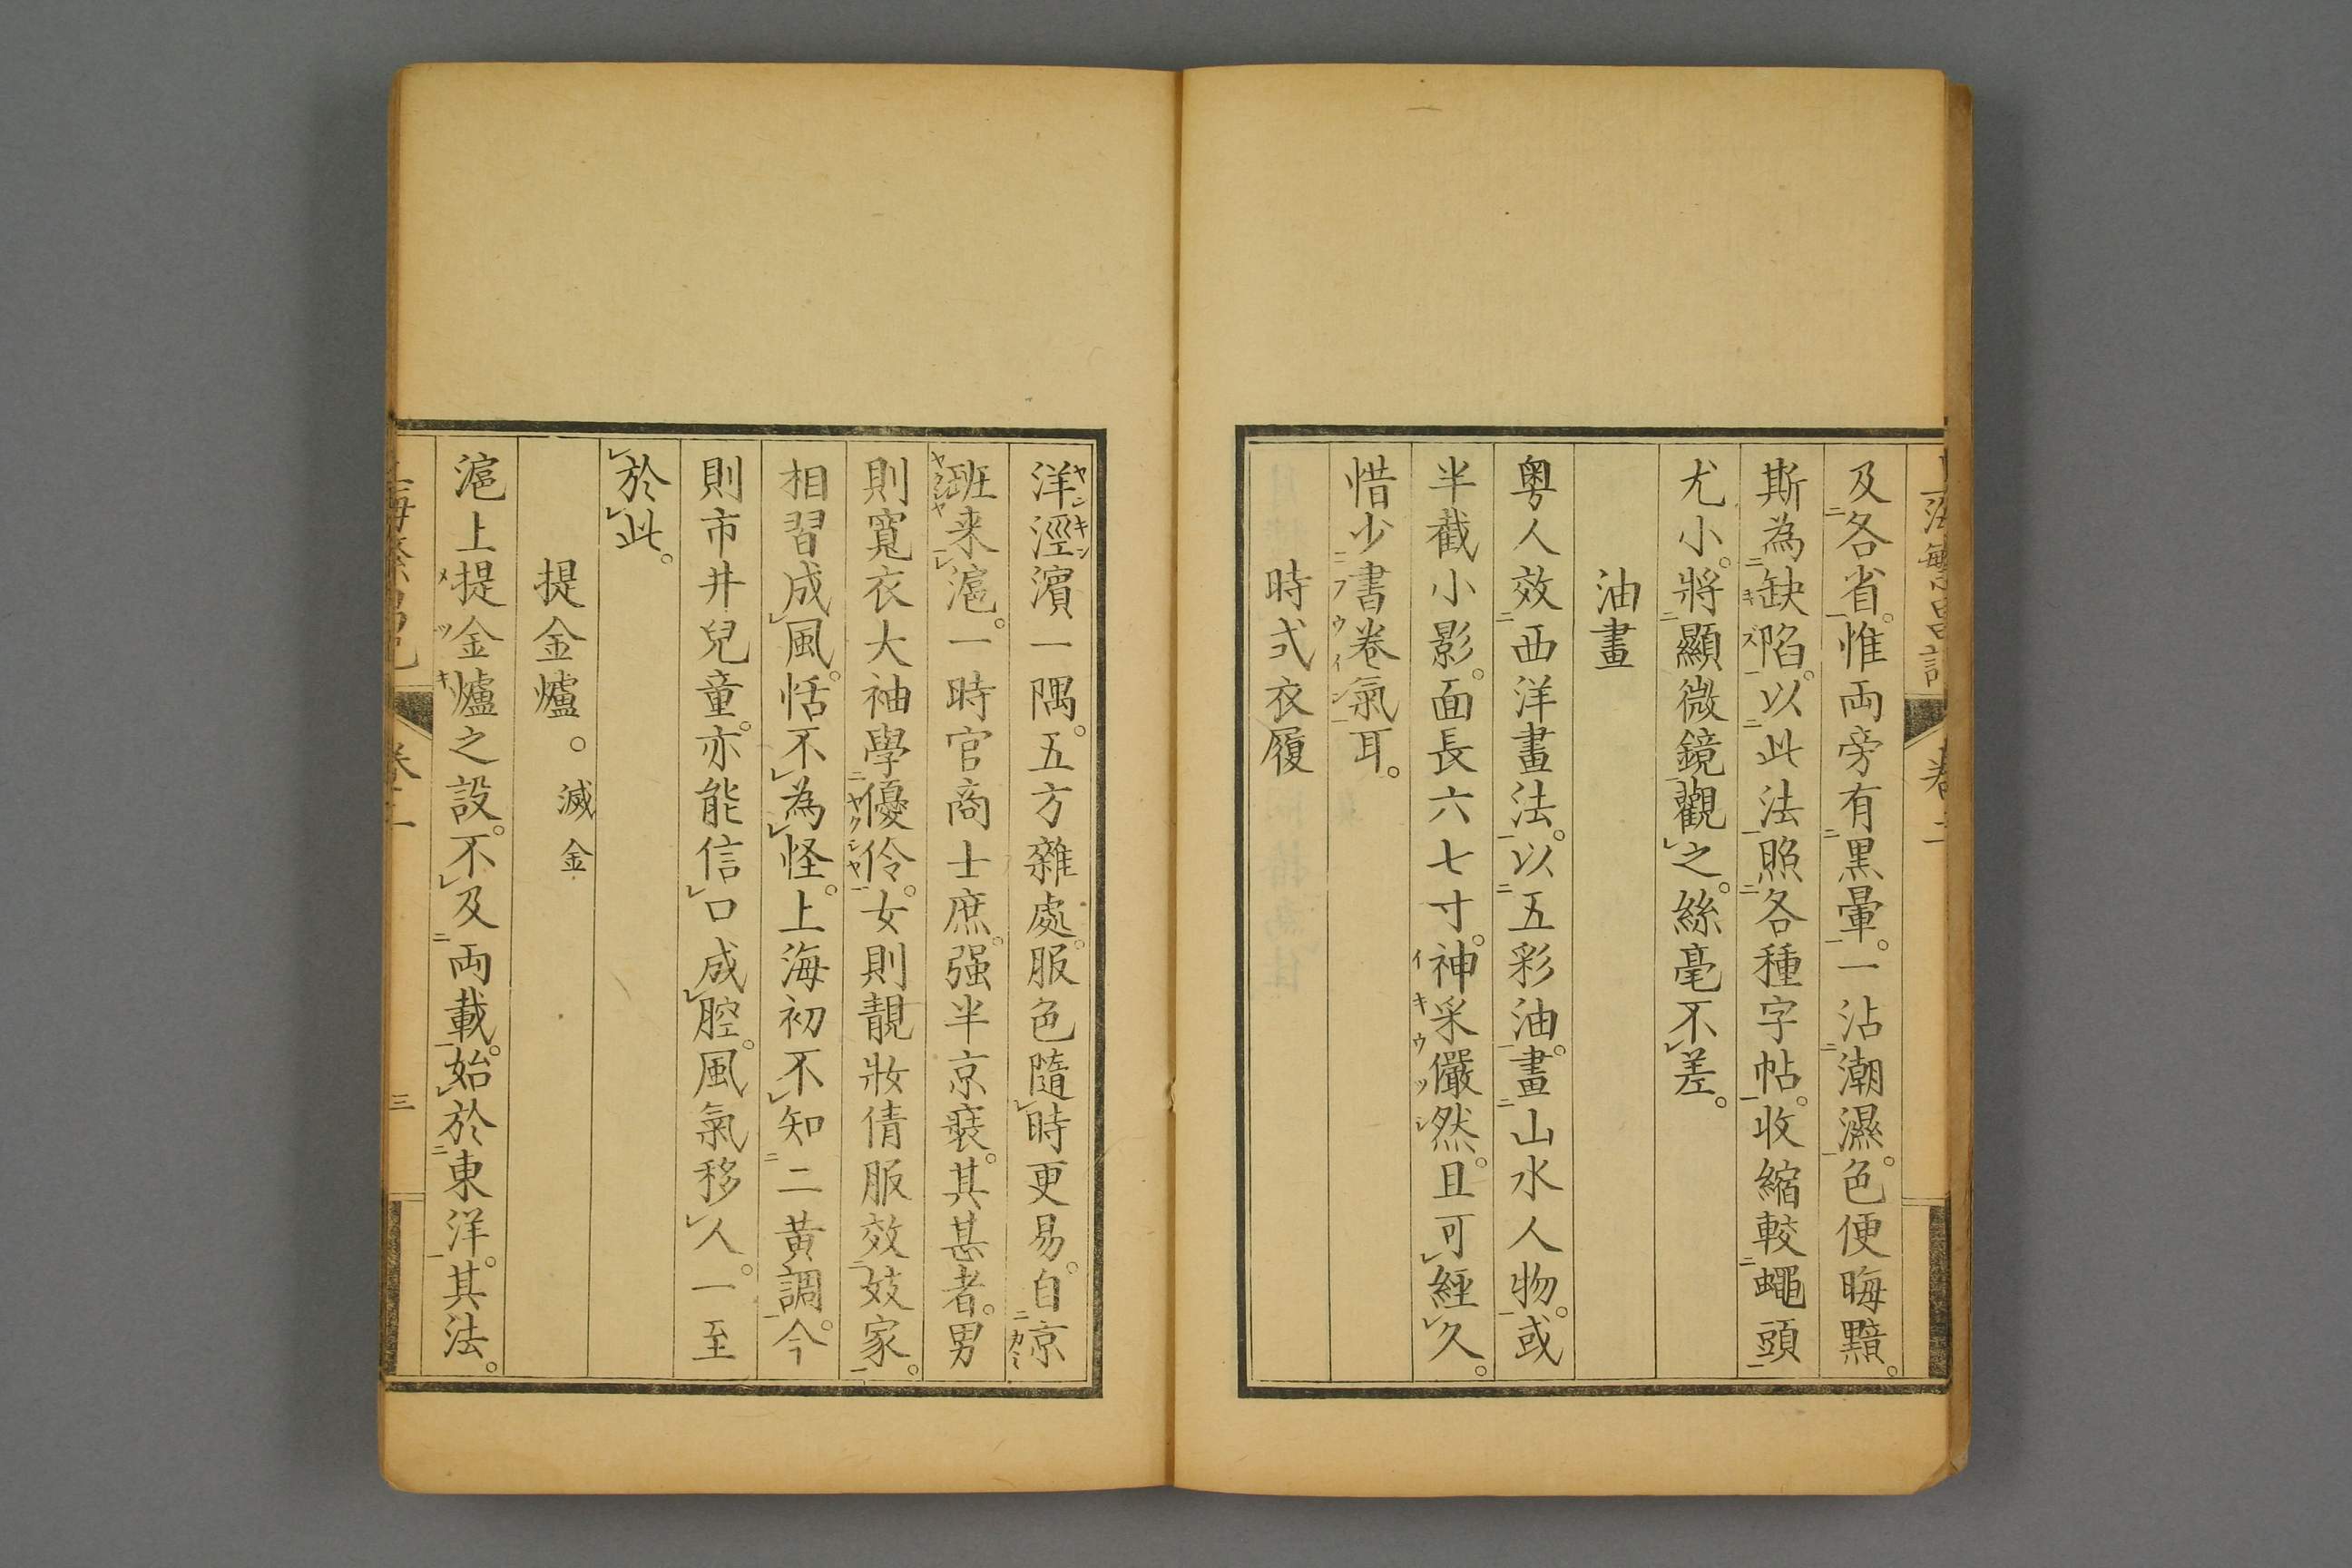 上海繁昌記 卷二
及各省。惟両旁有黒暈。一沾潮濕。色便晦黯。
斯為缺陷。以此法照各種字帖。收縮較蠅頭
尤小。將顯微鏡觀之。絲毫不差。
油畫
粤人效西洋畫法。以五彩油。畫山水人物。或
半截小影。面長六七寸。神采儼然。且可經久。
惜少書卷氣耳。
時式衣履
洋涇濱一隅。五方雜處。服色隨時更易。自京
班来滬。一時官商士庶。强半京裝。其甚者。男
則寛衣大袖學優伶。女則靚妝倩服效妓家。
相習成風。恬不為怪。上海初不知二黃調。今
則市井兒童。亦能信口成腔。風氣移人。一至
於此。
提金爐。滅金
滬上提金爐之設。不及両載。始於東洋。其法。
上海繁昌記 卷二 三